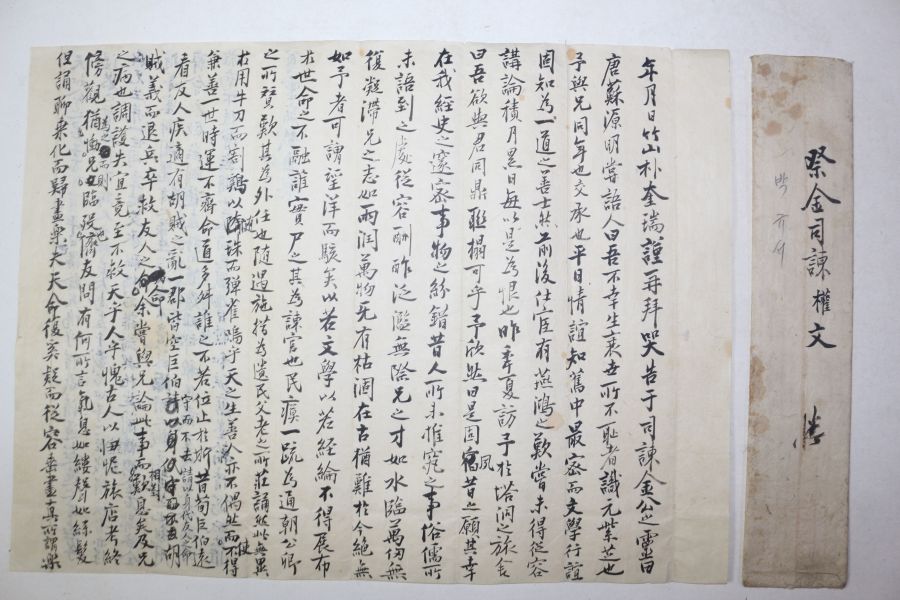 祭金司諫權文
年月日竹山朴奎瑞謹再拜哭告于司諫金公之靈曰
唐蘇源明嘗語人曰吾不幸生衰世所不恥者識元紫芝也
予與兄同年也交承也平日情誼知舊中最密而文學行誼
固知為一道之善士然前後仕宦有燕鴻之歎嘗未得從容
講論積月累日每以是為恨也昨年夏訪予於塔洞之旅舍
曰吾欲與君同鼎聯榻可乎予欣然曰是固夙昔之願其幸
在我經史之邃密事物之紛錯昔人所未推究之事俗儒所
未語到之處從容酬酢泛濫無際兄之才如水臨萬仞無
復凝滯兄之志如雨潤萬物无有枯涸在古猶難於今絶無
如予者可謂望洋而駭矣以若文學以若經綸不得展布
於世命之不融誰實尸之其為諫官也民瘼一疏為通朝公卿
之所賢歎其為外任也隨遇施措為遺民父老之所莊誦然此無異
求用牛刀而割鷄以隋珠而彈雀嗚乎天之生善人亦不偶然而不得使
兼善一世時運不齊命道多舛誰之不若位止於斯昔荀巨伯遠
看友人疾適有胡賊之亂一郡皆空巨伯守而不去請以身代友人之命胡
賊義而退兵卒救友人之命余嘗與兄論此事而相對歎息矣及兄
之病也調護失宜竟至不救天乎人乎愧古人以
傍觀猶
但誦聊乘化而歸盡樂夫天命復奚疑而從容乘盡真所謂樂